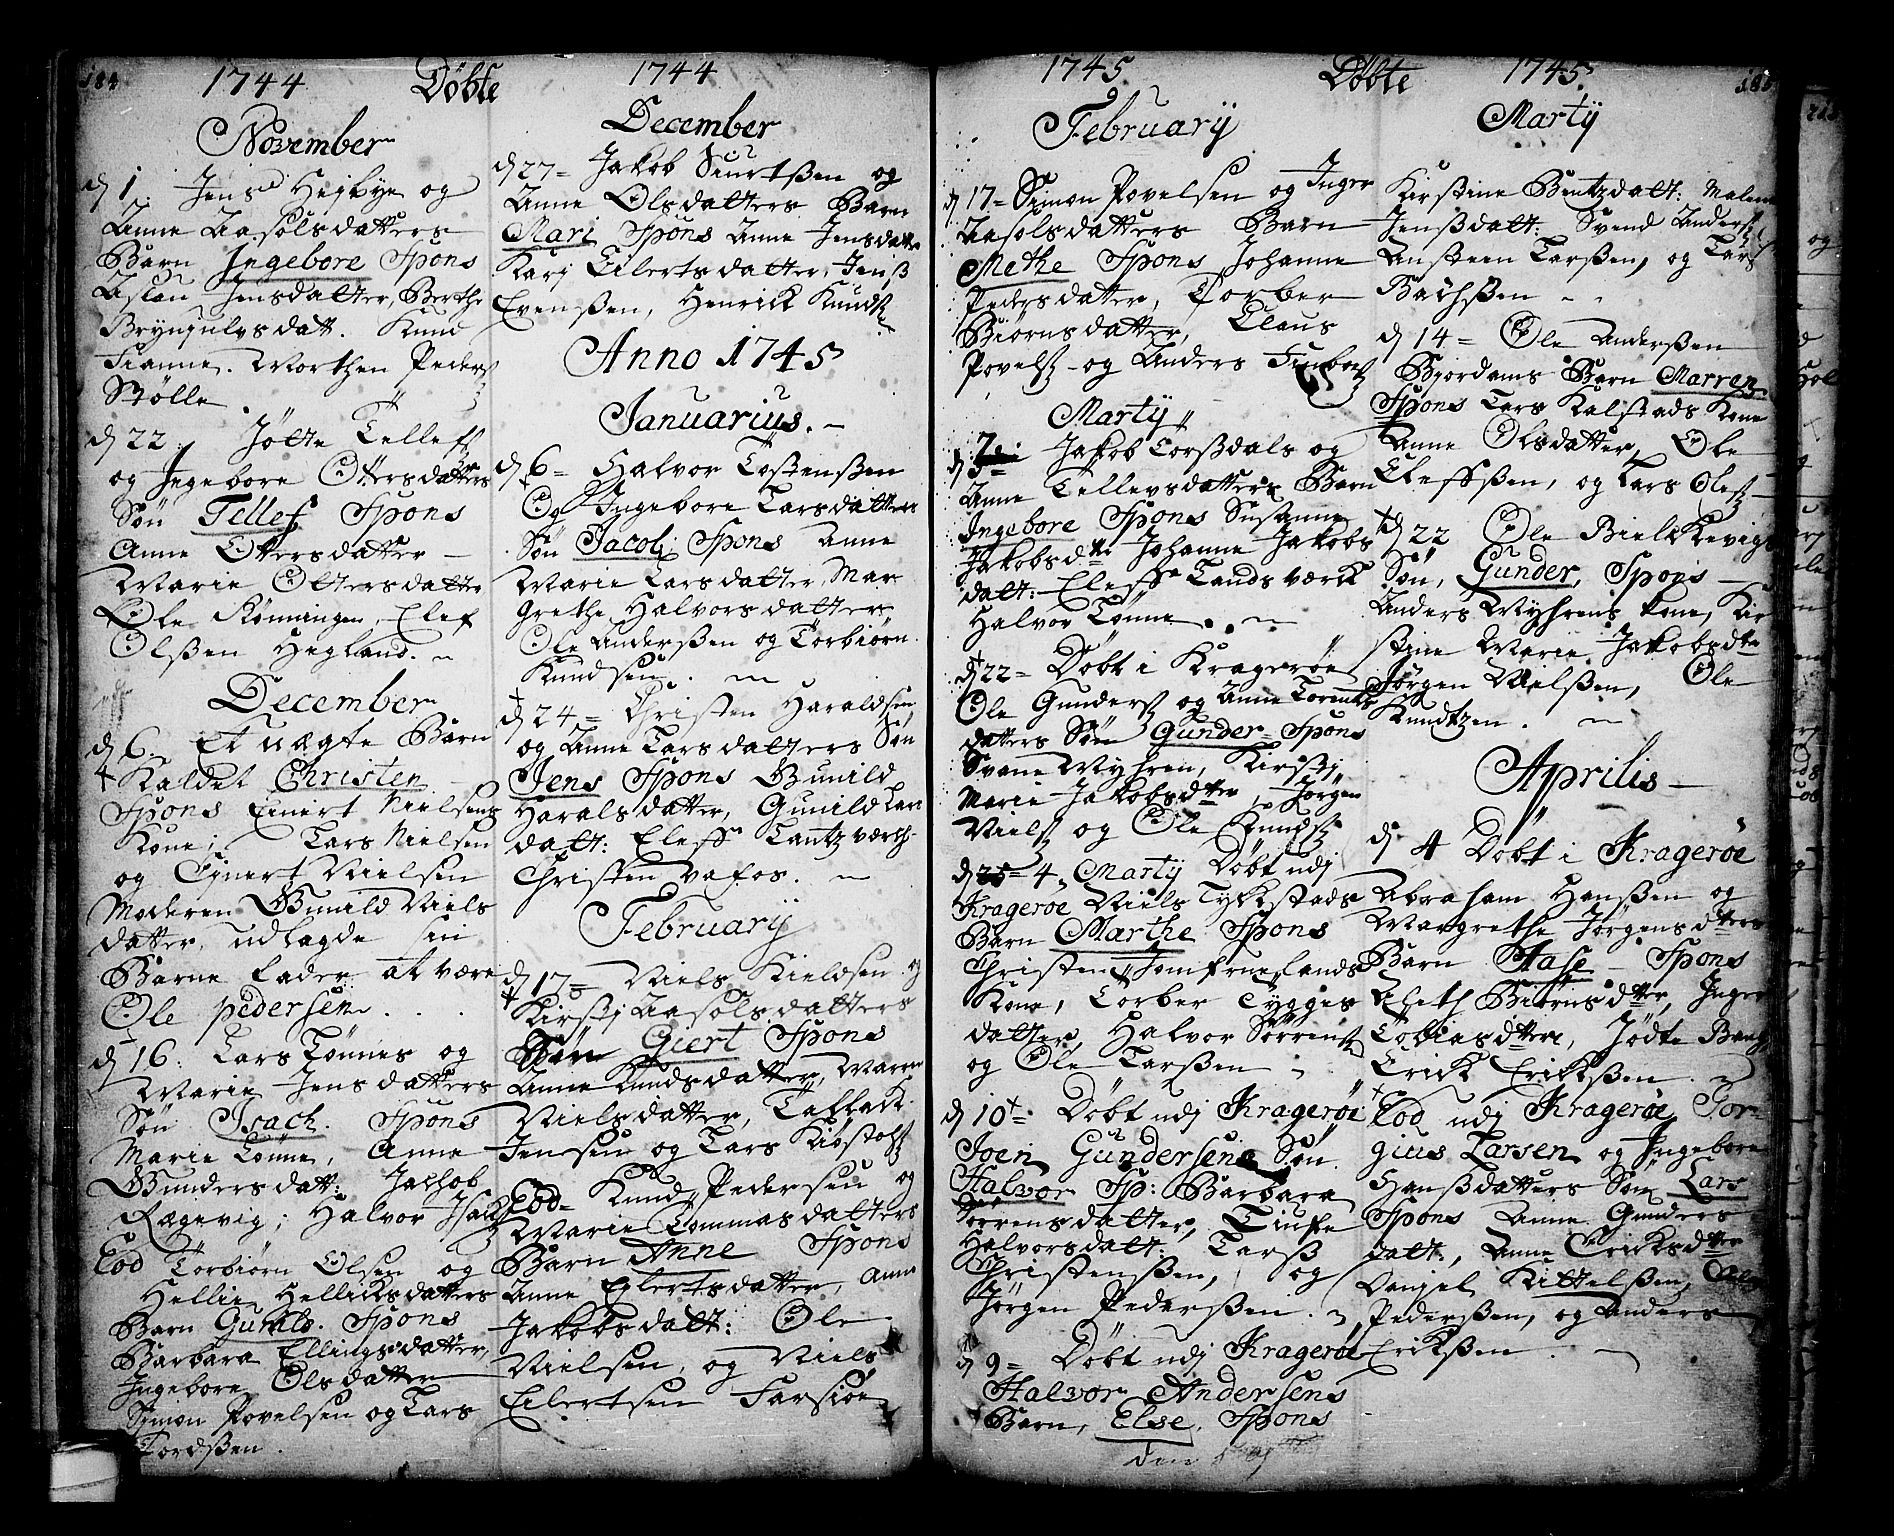 184
1744 Döbte 1744
November
d 1. Jens Hejbye og
Anne Aasolsdatters
Barn Ingebore Spons
Aslau Jensdatter, Berthe
Bryngulvsdatt. Knud
Fianne. Morthen Peders
Stölle
d 22. Jötte Tellefs
og Ingebore Ottersdatters
Sön Tellef Spons
Anne Ottersdatter
Marie Ottersdatter
Ole Rönningen, Elef
Olsßen Hegland.
December
d 6. Et uægte Barn
Kaldet Christen
Spons Einert Nielsens
Kone; Lars Nielsen
og Ejnert Nielsen
Moderen Gunild Niels
datter, udlagde sin
Barne fader at være
Ole Pedersen.
d 16. Lars Tönnes og
Marie Jensdatters
Sön Isach. Spons
Marie Tönne, Anne
Gundersdatt: Jachob
Rægevig; Halvor Isachs
Eod Torbiörn Olsen og
Hellie Hellicksdatters
Barn Gunild. Spons
Barbara Ellingsdatter,
Ingebore Olsdatter
Simon Povelsen og Lars
Tordsßen.
December
d 27 = Jakob Siurtsßen og
Anne Olsdatters Barn
Mari Spons Anne Jensdatter
Karj Eilertsdatter, Jenß
Evensßen, Henrick Knuds
Anno 1745
Januarius.
d 6 = Halvor Tostensßen
Og Ingebore Larsdatters
Sön Jacob Spons Anne
Marie Larsdatter, Mar
grethe Halvorsdatter
Ole Andersßen og Torbiörn
Knudsen.
d 24 = Christen Haraldsen
og Anne Larsdatters Sön
Jens Spons Gunild
Haralsdatter, Gunild Lars
datt: Eleff Tantzværch
Christen Vafos.
Februarÿ
d 17 = Niels Kieldsen og
Kirstj Aasolsdatters
Sön Giert Spons
Anne Knudsdatter, Maren
Nielsdatter, Tallack
Jensen og Lars Kiöstols
Eod = Knud Pedersen og
Marie Tommasdatters
Barn Anne Spons
Anne Eilertsdatter, Anne
Jakobsdatt: Ole
Nielsen, og Niels
Eilertsen Farsiöe
1745 Döbte 1745.
185
Februarÿ
d 17 = Simon Povelsen og Inger
Aasolsdatters Barn
Methe Spons Johanne
Pedersdatter, Torber
Biörnsdatter, Claus
Povels og Anders Finboes
Martÿ
d 7 Jakob Torsdals og
Anne Tellevsdatters Barn
Ingebore Spons Susanne
Jakobsdtr Johanne Jakobs
datt: Eleff Tandsværk
Halvor Tönne
d 22 = Döbt i Krageröe
Ole Gunders og Anne
datters Sön Gunder = Spons
Svane Myhren, Kirstj
Marie Jakobsdtter, Jörgen
Niels og Ole Knuds
d 4 Martÿ Döbt udj
Krageröe Niels Tykkestads
Barn Marthe Spons
Christen Jomfruelands
Kone, Torber Tygges
datter, Halvor Sörrens
og Ole Larsßen
d 10 Döbt udj Krageröe
Joen Gundersens Sön
Halvor Sp: Barbara
Sörrensdatter, Tinke
Halvorsdatt: Larß
Christensßen, og
Jörgen Pedersßen.
d 9 = Döbt udj Krageröe
Halvor Andersens
Barn, Else, Spons
den
Martÿ
Kirstine Bentzdatt: Malene
Jensßdatt: Svend Anders
Ansteen Larsßen, og Lars
Bachsßen
d 14 = Ole Andersßen
Bjordams Barn Marren
Spons Lars Kalstads Kone
Anne Olsdatter, Ole
Eleffsßen, og Lars Oles
d 22 Ole Bielkkevigs
Sön, Gunder, Spons
Anders Myhrens kone, Kir
stine Marie Jakobsdtr
Jörgen Nielsßen, Ole
Knudtzen.
Aprilis
d 4 Döbt i Krageröe
Abraham Hansßen og
Margrethe Jörgensdtters
Barn Aase Spons
Biörnsdtter, Inger
Tobiasdtter, Jödte Bang
Erick Erikksßen.
Eod udj Krageröe Gor
gius Larsen og Ingebore
Hansßdatters Sön Lars
Spons Anne Gunders
datt:, Anne Ericksdtter
Danjel Kittelsßen,
Pedersßen, og Anders
Erikssen.